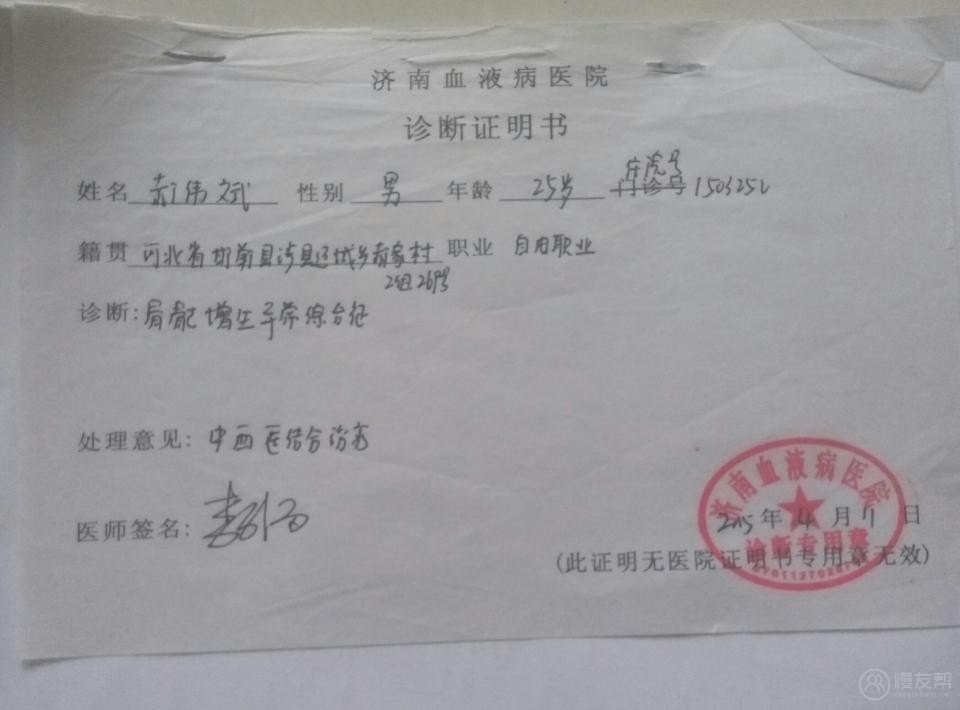 济南血液病医院
诊断证明书
住院号
姓名 伟斌 性别 男 年龄 25岁 门诊号 1503252
籍贯 河北省邯郸县涉县辽城乡 家村 职业 自由职业
2组269号
诊断: 骨髓增生异常综合征
处理意见: 中西医结合治疗
医师签名:
济南血液病医院
2015年4月11日
诊断专用章
(此证明无医院证明书专用章无效)
慢友帮